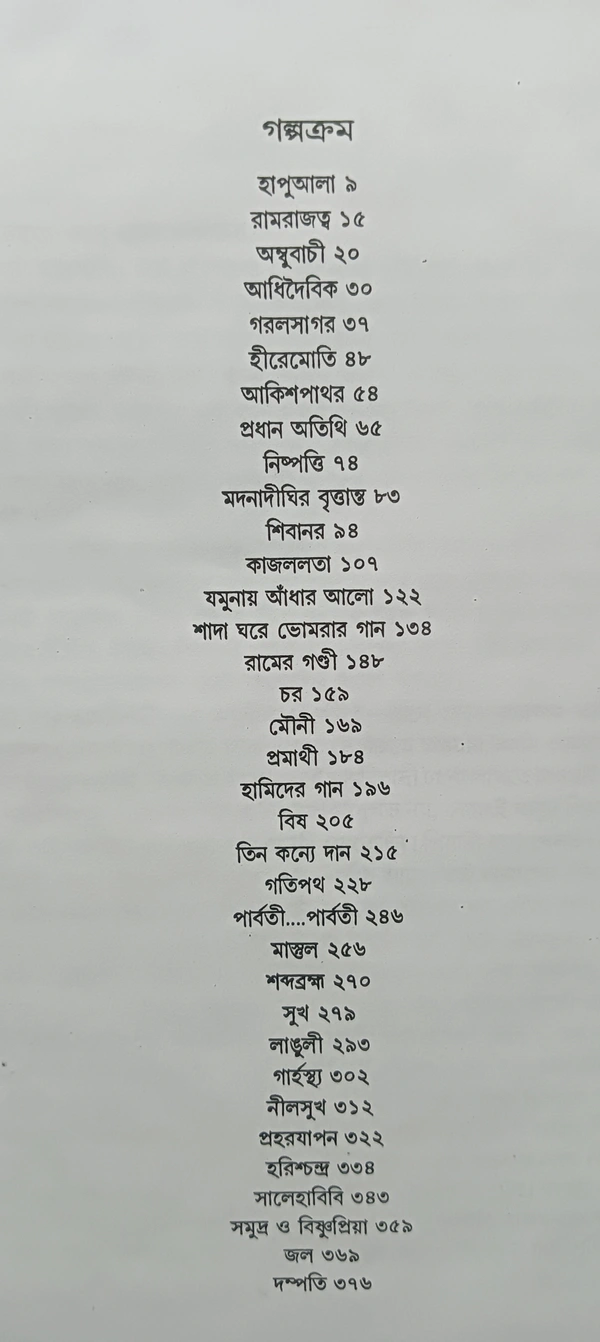 গল্পক্রম
হাপুআলা ৯
রামরাজত্ব ১৫
অম্বুবাচী ২০
আধিদৈবিক ৩০
গরলসাগর ৩৭
হীরেমোতি ৪৮
আকিশপাথর ৫৪
প্রধান অতিথি ৬৫
নিষ্পত্তি ৭৪
মদনাদীঘির বৃত্তান্ত ৮৩
শিবানর ৯৪
কাজললতা ১০৭
যমুনায় আঁধার আলো ১২২
শাদা ঘরে ভোমরার গান ১৩৪
রামের গণ্ডী ১৪৮
চর ১৫৯
মৌনী ১৬৯
প্রমাথী ১৮৪
হামিদের গান ১৯৬
বিষ ২০৫
তিন কন্যে দান ২১৫
গতিপথ ২২৮
পার্বতী....পার্বতী ২৪৬
মাস্তুল ২৫৬
শব্দব্রহ্ম ২৭০
সুখ ২৭৯
লাঙুলী ২৯৩
গার্হস্থ্য ৩০২
নীলসুখ ৩১২
প্রহরযাপন ৩২২
হরিশ্চন্দ্র ৩৩৪
সালেহাবিবি ৩৪৩
সমুদ্র ও বিষ্ণুপ্রিয়া ৩৫৯
জল ৩৬৯
দম্পতি ৩৭৬